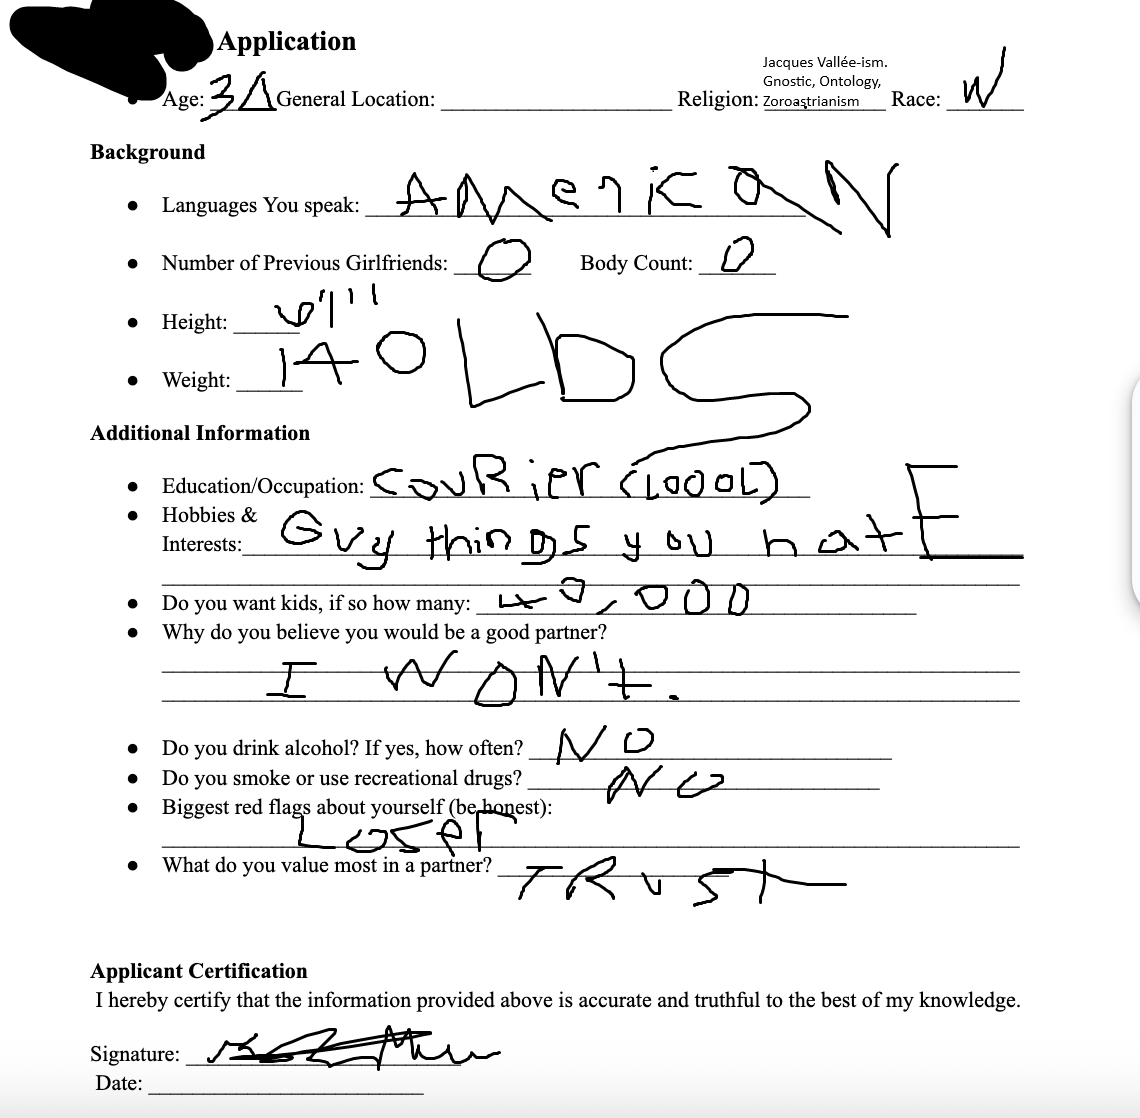 Application
Age: 3 General Location: Religion: Jacques Vallée-ism. Gnostic, Ontology, Zoroastrianism Race: W
Background
Languages You speak: AMericaN
Number of Previous Girlfriends: 0 Body Count: 0
Height:
Weight: 140 Lbs
Additional Information
Education/Occupation: couRier (LOOOL)
Hobbies &
Interests: Guy things you hatE
Do you want kids, if so how many: 40,000
Why do you believe you would be a good partner?
I WON't.
Do you drink alcohol? If yes, how often? NO
Do you smoke or use recreational drugs? NO
Biggest red flags about yourself (be honest):
Loser
What do you value most in a partner? TRust
Applicant Certification
I hereby certify that the information provided above is accurate and truthful to the best of my knowledge.
Signature:
Date: